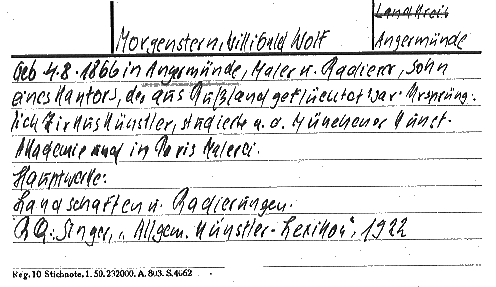 Landkreis
Morgenstern, Willibald Wolf
Angermünde
Geb 4.8.1866 in Angermünde, Maler u. Radierer, Sohn
eines Kantors, der aus Rußland geflüchtet war. Ursprüng-
lich Zirkuskünstler, studierte u.a. Münchener Kunst-
Akademie und in Paris Malerei.
Hauptwerke:
Landschaften u. Radierungen.
Singer, "Allgem. Künstler-Lexikon", 1922
Reg. 10 Stichnote. 1. 50. 232000. A. 803. S. 4062